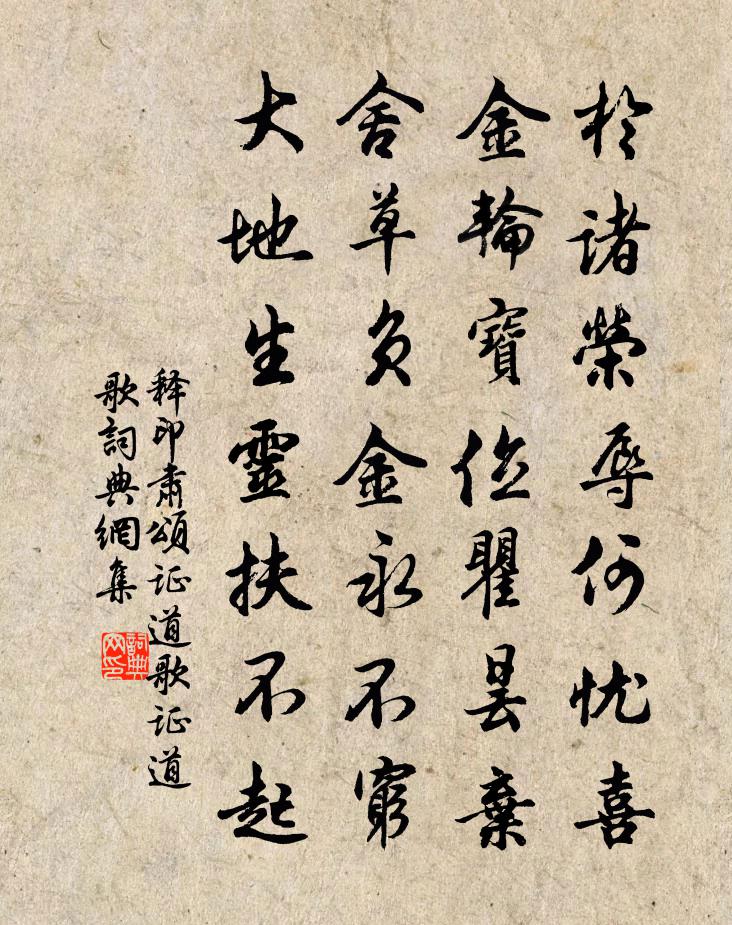 於諸榮辱何忧喜
金輪寶位瞿曇棄
舍草負金永不窮
大地生靈扶不起
释印肃頌证道歌证道
歌詞典網集
詞典